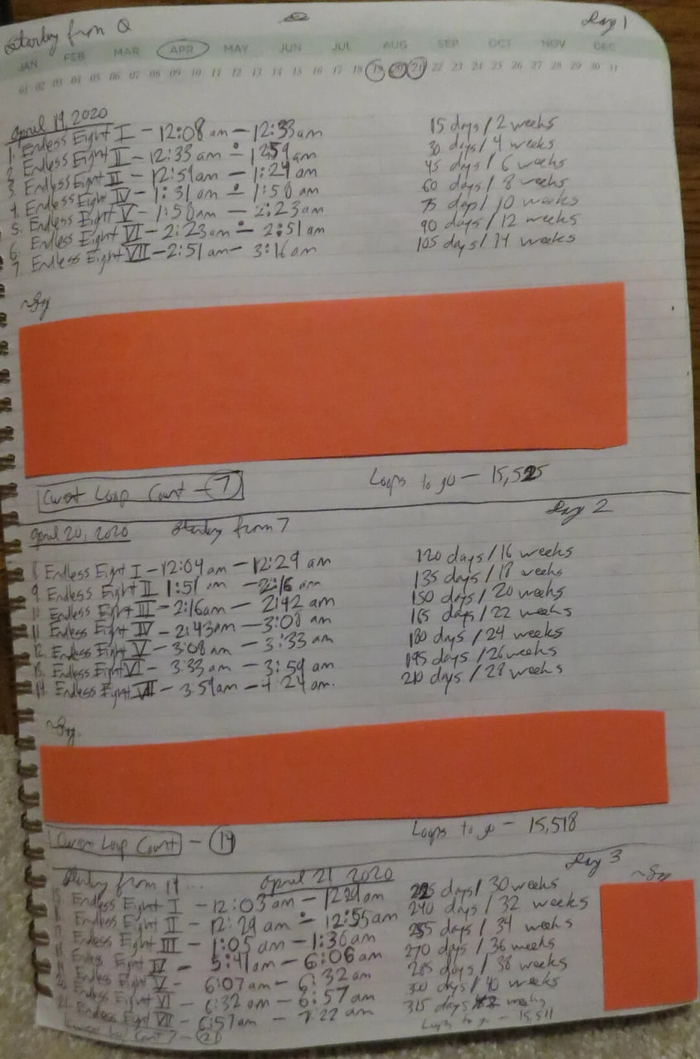 Starting from 0 Day 1
JAN FEB MAR APR MAY JUN JUL AUG SEP OCT NOV DEC
01 02 03 04 05 06 07 08 09 10 11 12 13 14 15 16 17 18 19 20 21 22 23 24 25 26 27 28 29 30 31
April 19, 2020
1. Endless Eight I - 12:08 am - 12:33 am 15 days / 2 weeks
2. Endless Eight II - 12:33 am - 12:59 am 30 days / 4 weeks
3. Endless Eight III - 12:59 am - 1:24 am 45 days / 6 weeks
4. Endless Eight IV - 1:31 am - 1:58 am 60 days / 8 weeks
5. Endless Eight V - 1:58 am - 2:23 am 75 days / 10 weeks
6. Endless Eight VI - 2:23 am - 2:51 am 90 days / 12 weeks
7. Endless Eight VII - 2:51 am - 3:16 am 105 days / 14 weeks
Current Loop Count - 7 Loops to go - 15,525
April 20, 2020 Starting from 7 Day 2
8 Endless Eight I - 12:04 am - 12:29 am 120 days / 16 weeks
9 Endless Eight II 1:51 am - 2:16 am 135 days / 18 weeks
10 Endless Eight III - 2:16 am - 2:42 am 150 days / 20 weeks
11 Endless Eight IV - 2:43 am - 3:08 am 165 days / 22 weeks
12. Endless Eight V - 3:08 am - 3:33 am 180 days / 24 weeks
13. Endless Eight VI - 3:33 am - 3:59 am 195 days / 26 weeks
14. Endless Eight VII - 3:59 am - 4:24 am. 210 days / 28 weeks
Current Loop Count - 14 Loops to go - 15,518
Starting from 14... April 21, 2020 Day 3
Endless Eight I - 12:03 am - 12:29 am 225 days / 30 weeks
Endless Eight II - 12:29 am - 12:55 am 240 days / 32 weeks
Endless Eight III - 1:05 am - 1:30 am 255 days / 34 weeks
Endless Eight IV - 5:41 am - 6:06 am 270 days / 36 weeks
Endless Eight V - 6:07 am - 6:32 am 285 days / 38 weeks
Endless Eight VI - 6:32 am - 6:57 am 300 days / 40 weeks
21. Endless Eight VII - 6:57 am - 7:22 am 315 days weeks
Current Loop Count - 21 Loops to go - 15,511